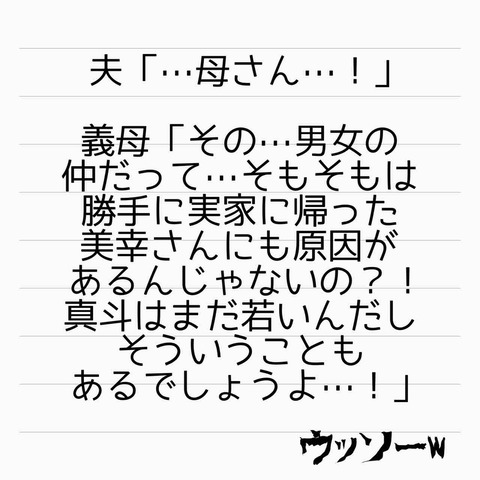 夫「…母さん…！」
義母「その…男女の
仲だって…そもそもは
勝手に実家に帰った
美幸さんにも原因が
あるんじゃないの？！
真斗はまだ若いんだし
そういうことも
あるでしょうよ…！」
ウッソーw